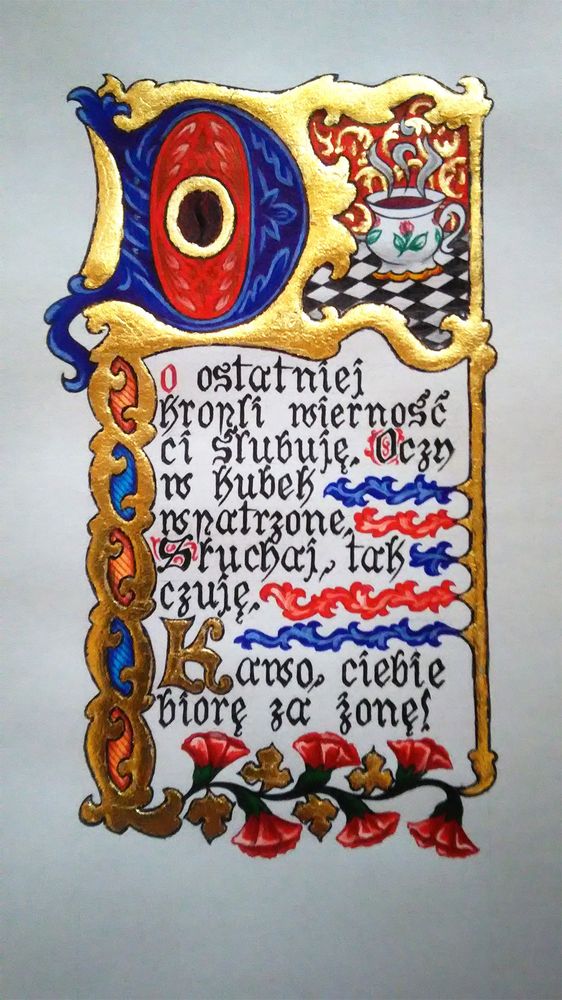 Do ostatniej
kropli wierność
ci ślubuję. Oczy
w kubek
wpatrzone,
Słuchaj, tak
czuję.
Kawo, ciebie
biorę za żonę!